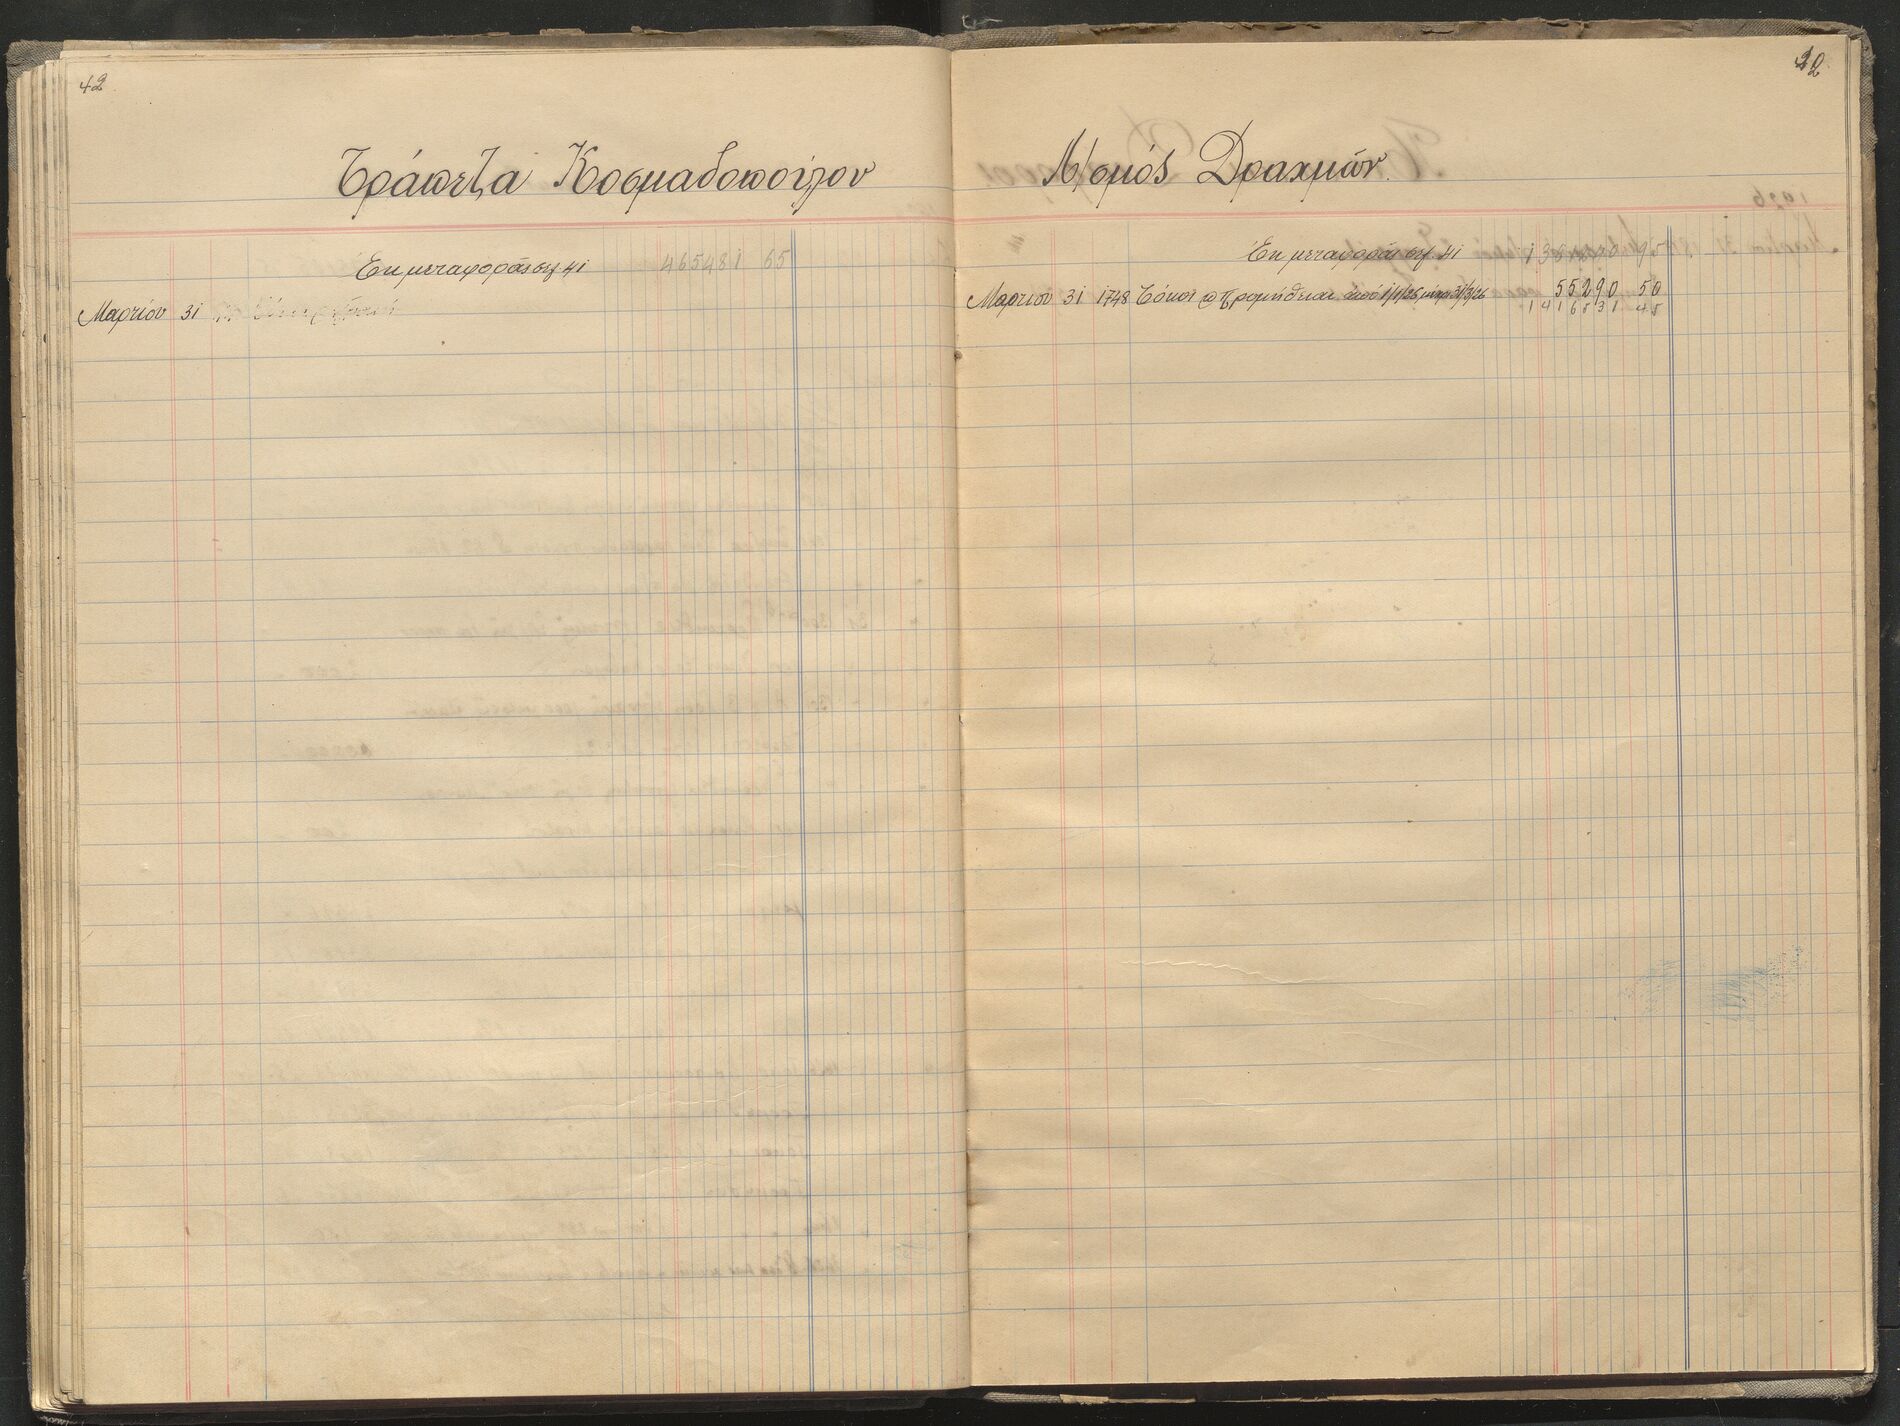 42
Τράπεζα Κοσμαδοπούλου
Εκ μεταφοράς σελ 41 465481 65
Μαρτίου 31
42
Λ/σμός Δραχμών.
Εκ μεταφοράς σελ. 41 95
Μαρτίου 31 1748 Τόκοι & προμήθειαι από 1/1/26 μέχρι 31/3/26 55290 50
1416531 45